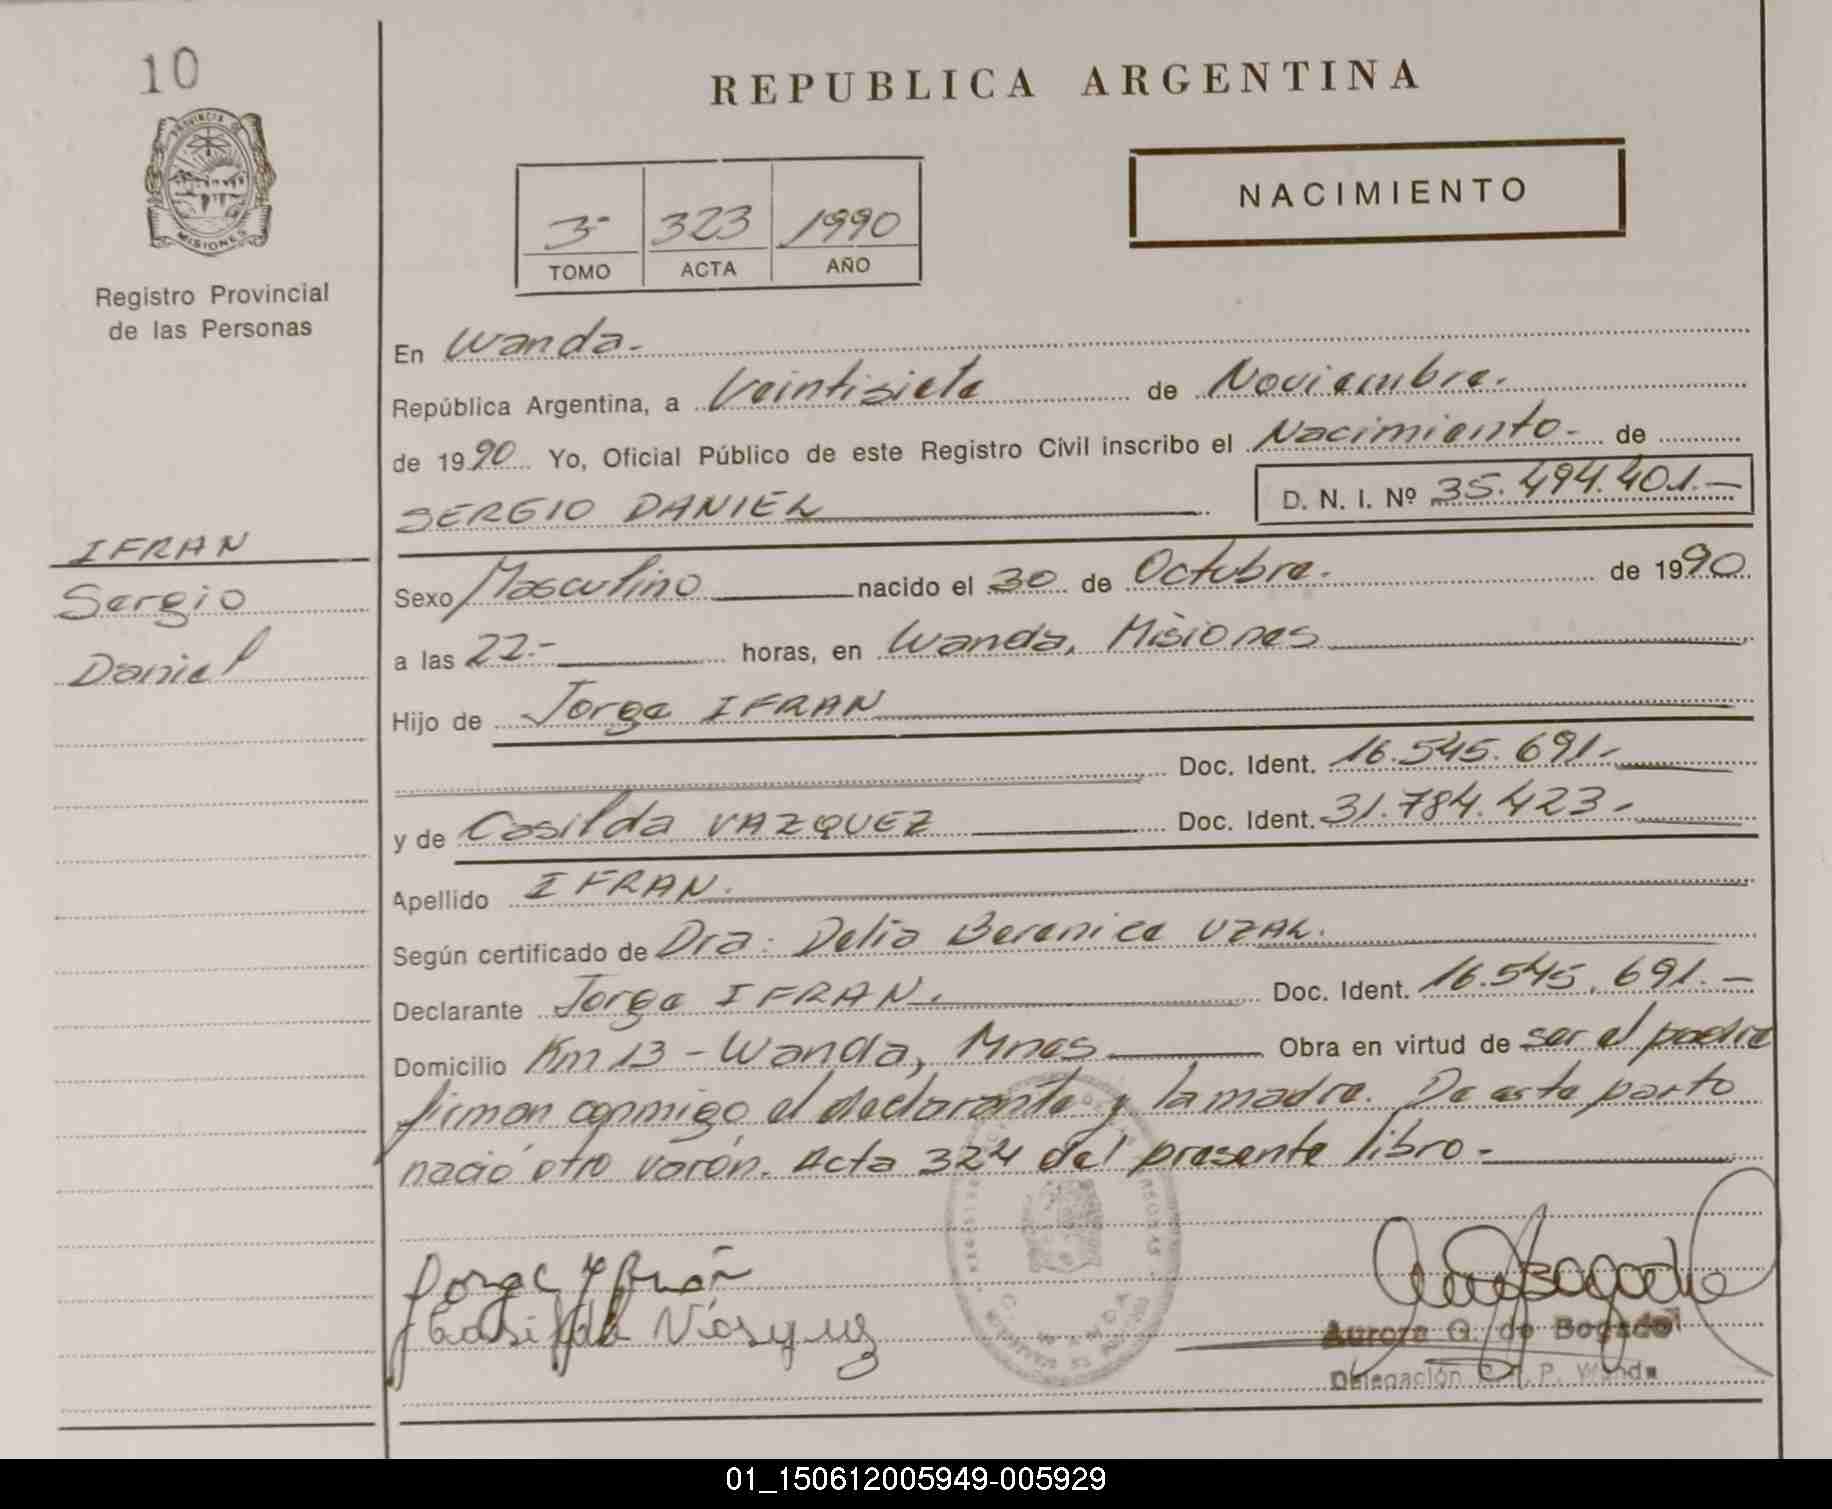 10
PROVINCIA DE
MISIONES
Registro Provincial
de las Personas
REPUBLICA ARGENTINA
NACIMIENTO
3- 323 1990
TOMO ACTA AÑO
En Wanda.-
República Argentina, a Veintisiete de Noviembre.
de 1990 Yo, Oficial Público de este Registro Civil inscribo el Nacimiento- de
SERGIO DANIEL D. N. I. Nº 35.494.401.-
IFRAN
Sergio
Daniel
Sexo Masculino nacido el 30 de Octubre. de 1990
a las 22.- horas, en Wanda, Misiones
Hijo de Jorge IFRAN
Doc. Ident. 16.545.691.-
y de Casilda VAZQUEZ Doc. Ident. 31.784.423.-
Apellido IFRAN.
Según certificado de Dra. Delia Berenice UZAL.
Declarante Jorge IFRAN. Doc. Ident. 16.545.691.-
Domicilio Km 13 - Wanda, Mnes Obra en virtud de ser el padre
firman conmigo el declarante y la madre. De este parto
nació otro varón. Acta 324 del presente libro.-
Jorge Yfrán
Casilda Vásquez
Aurora G. de Bogado
Delegación C. R. P. Wanda
01_150612005949-005929